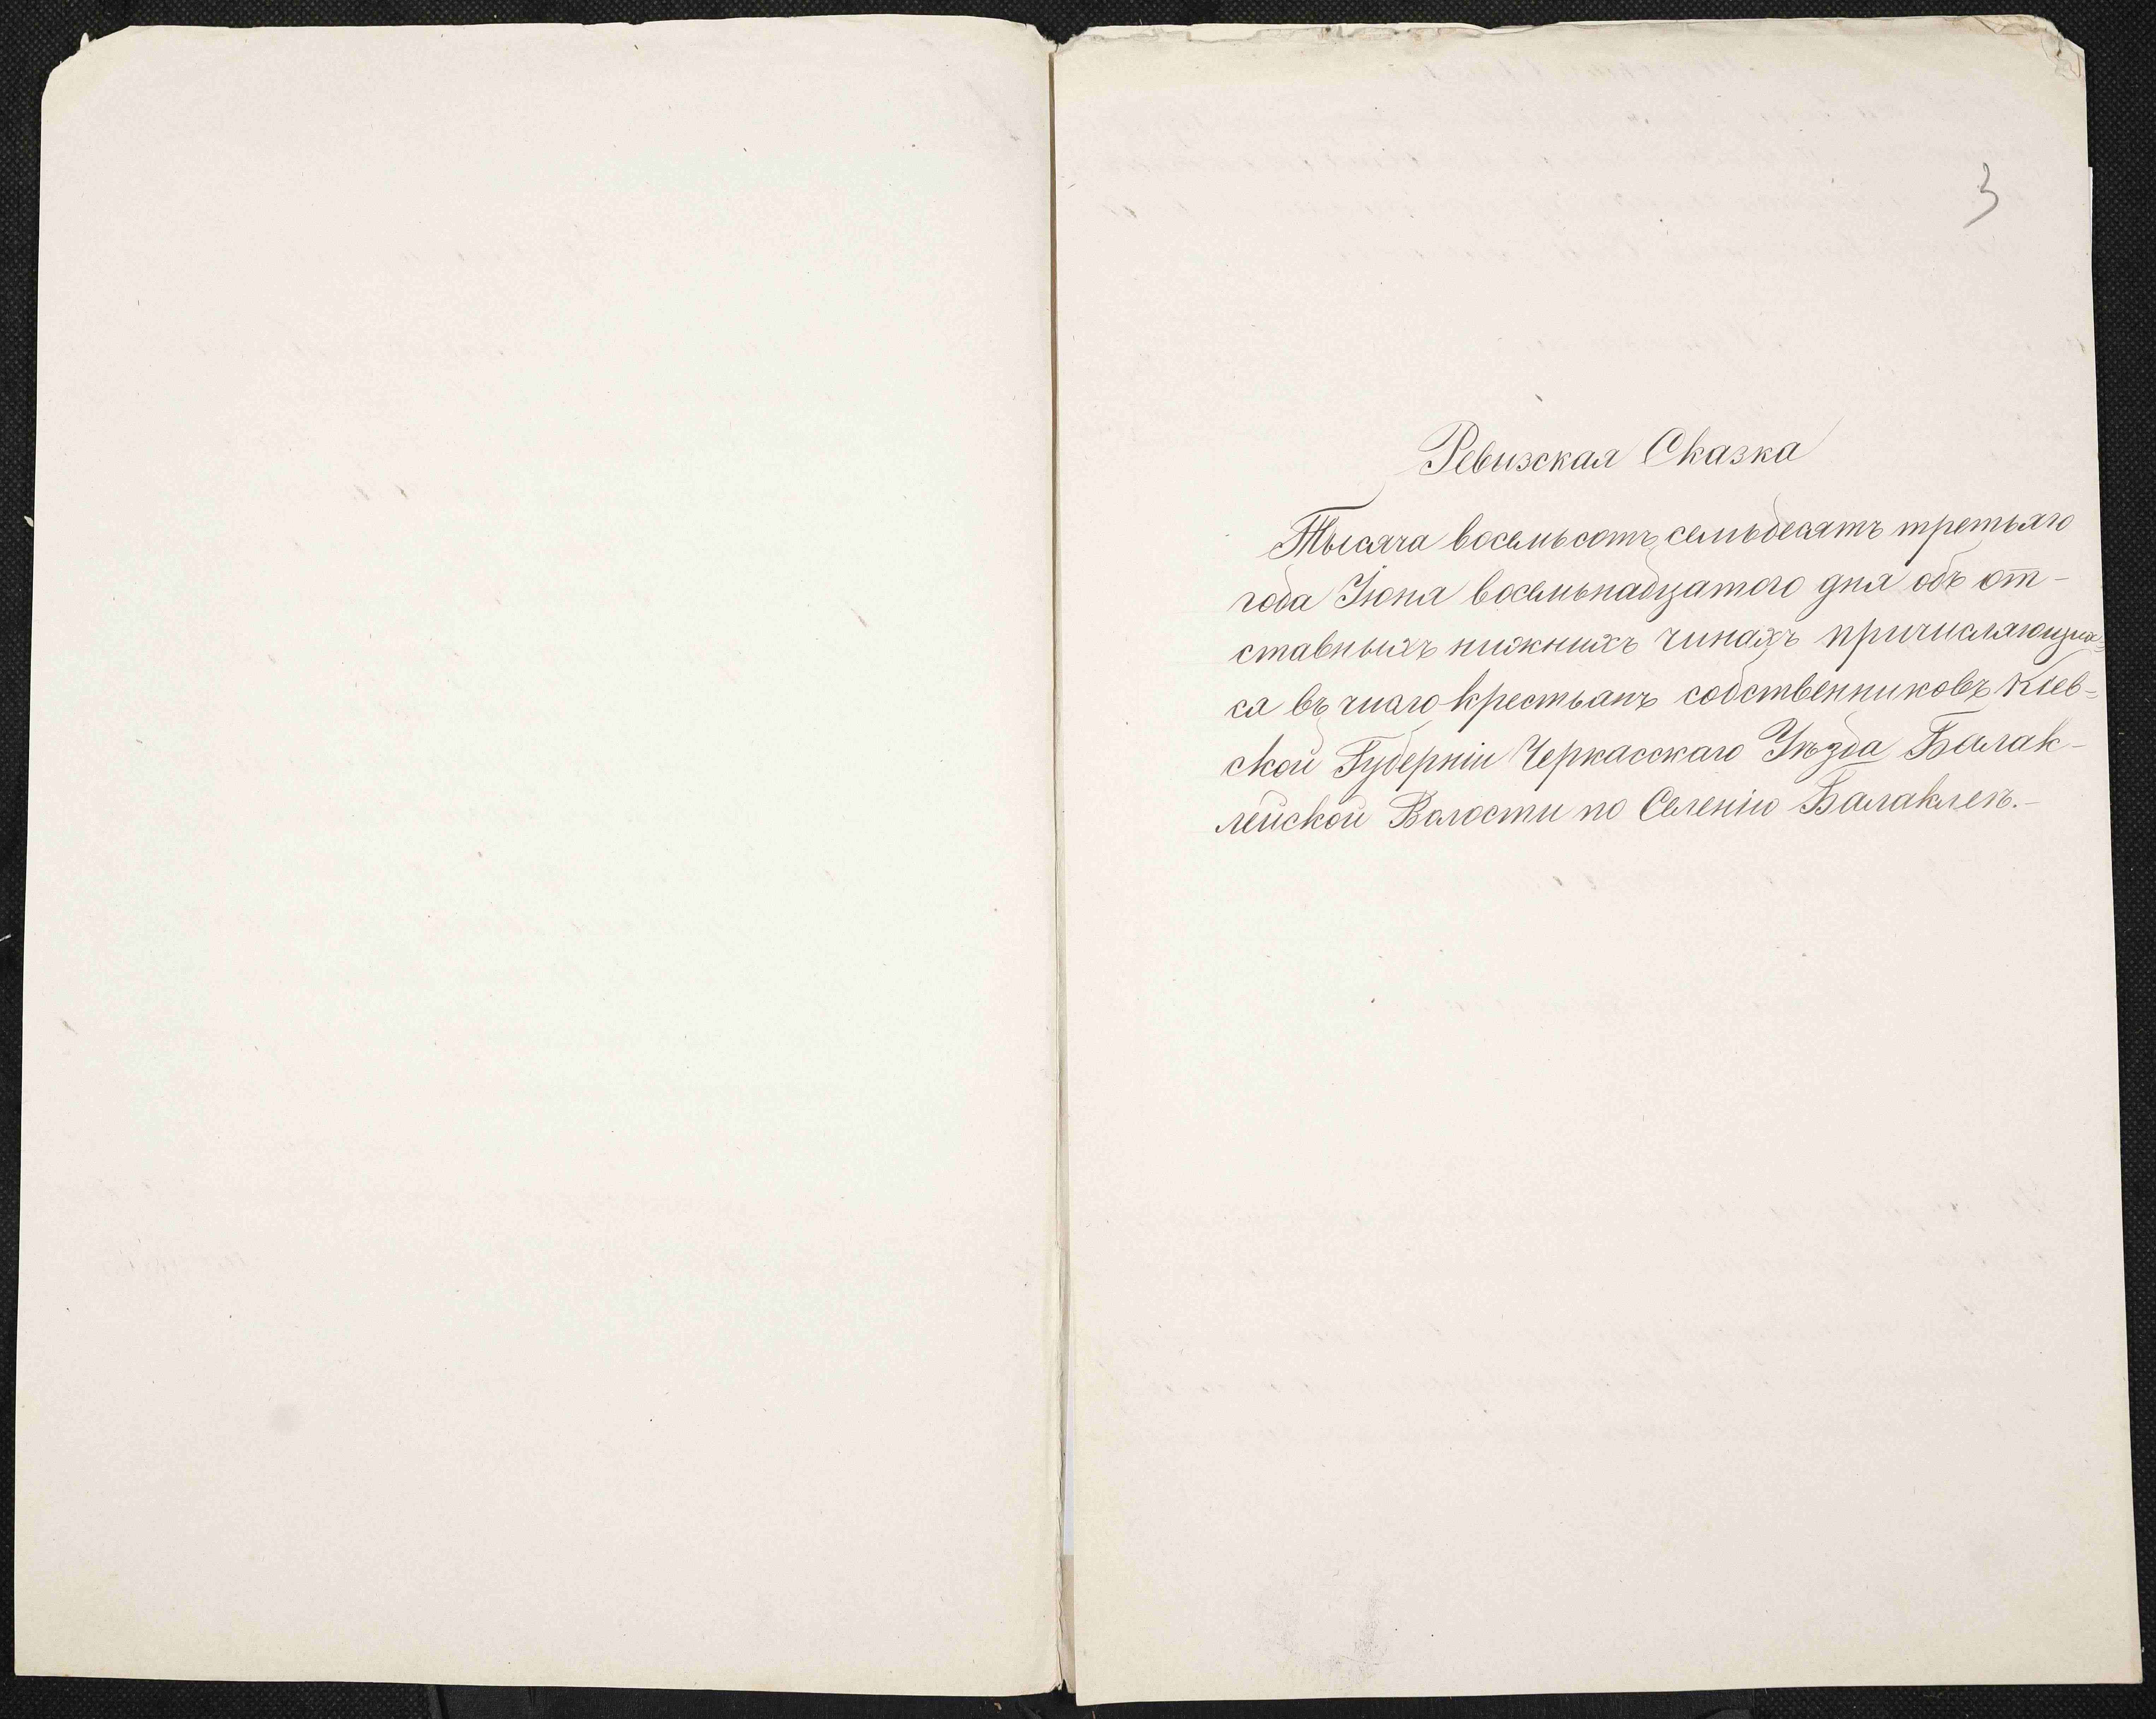 3
Ревизская Сказка
Тысяча восемьсотъ семьдесятъ третьяго
года Іюня восемьнадцатого дня объ от-
ставныхъ нижнихъ чинахъ причисляющих=
ся въ число крестьянъ собственниковъ Кіев=
ской Губерніи Черкасскаго Уѣзда Балак-
лейской Волости по Селенію Балаклеѣ.-